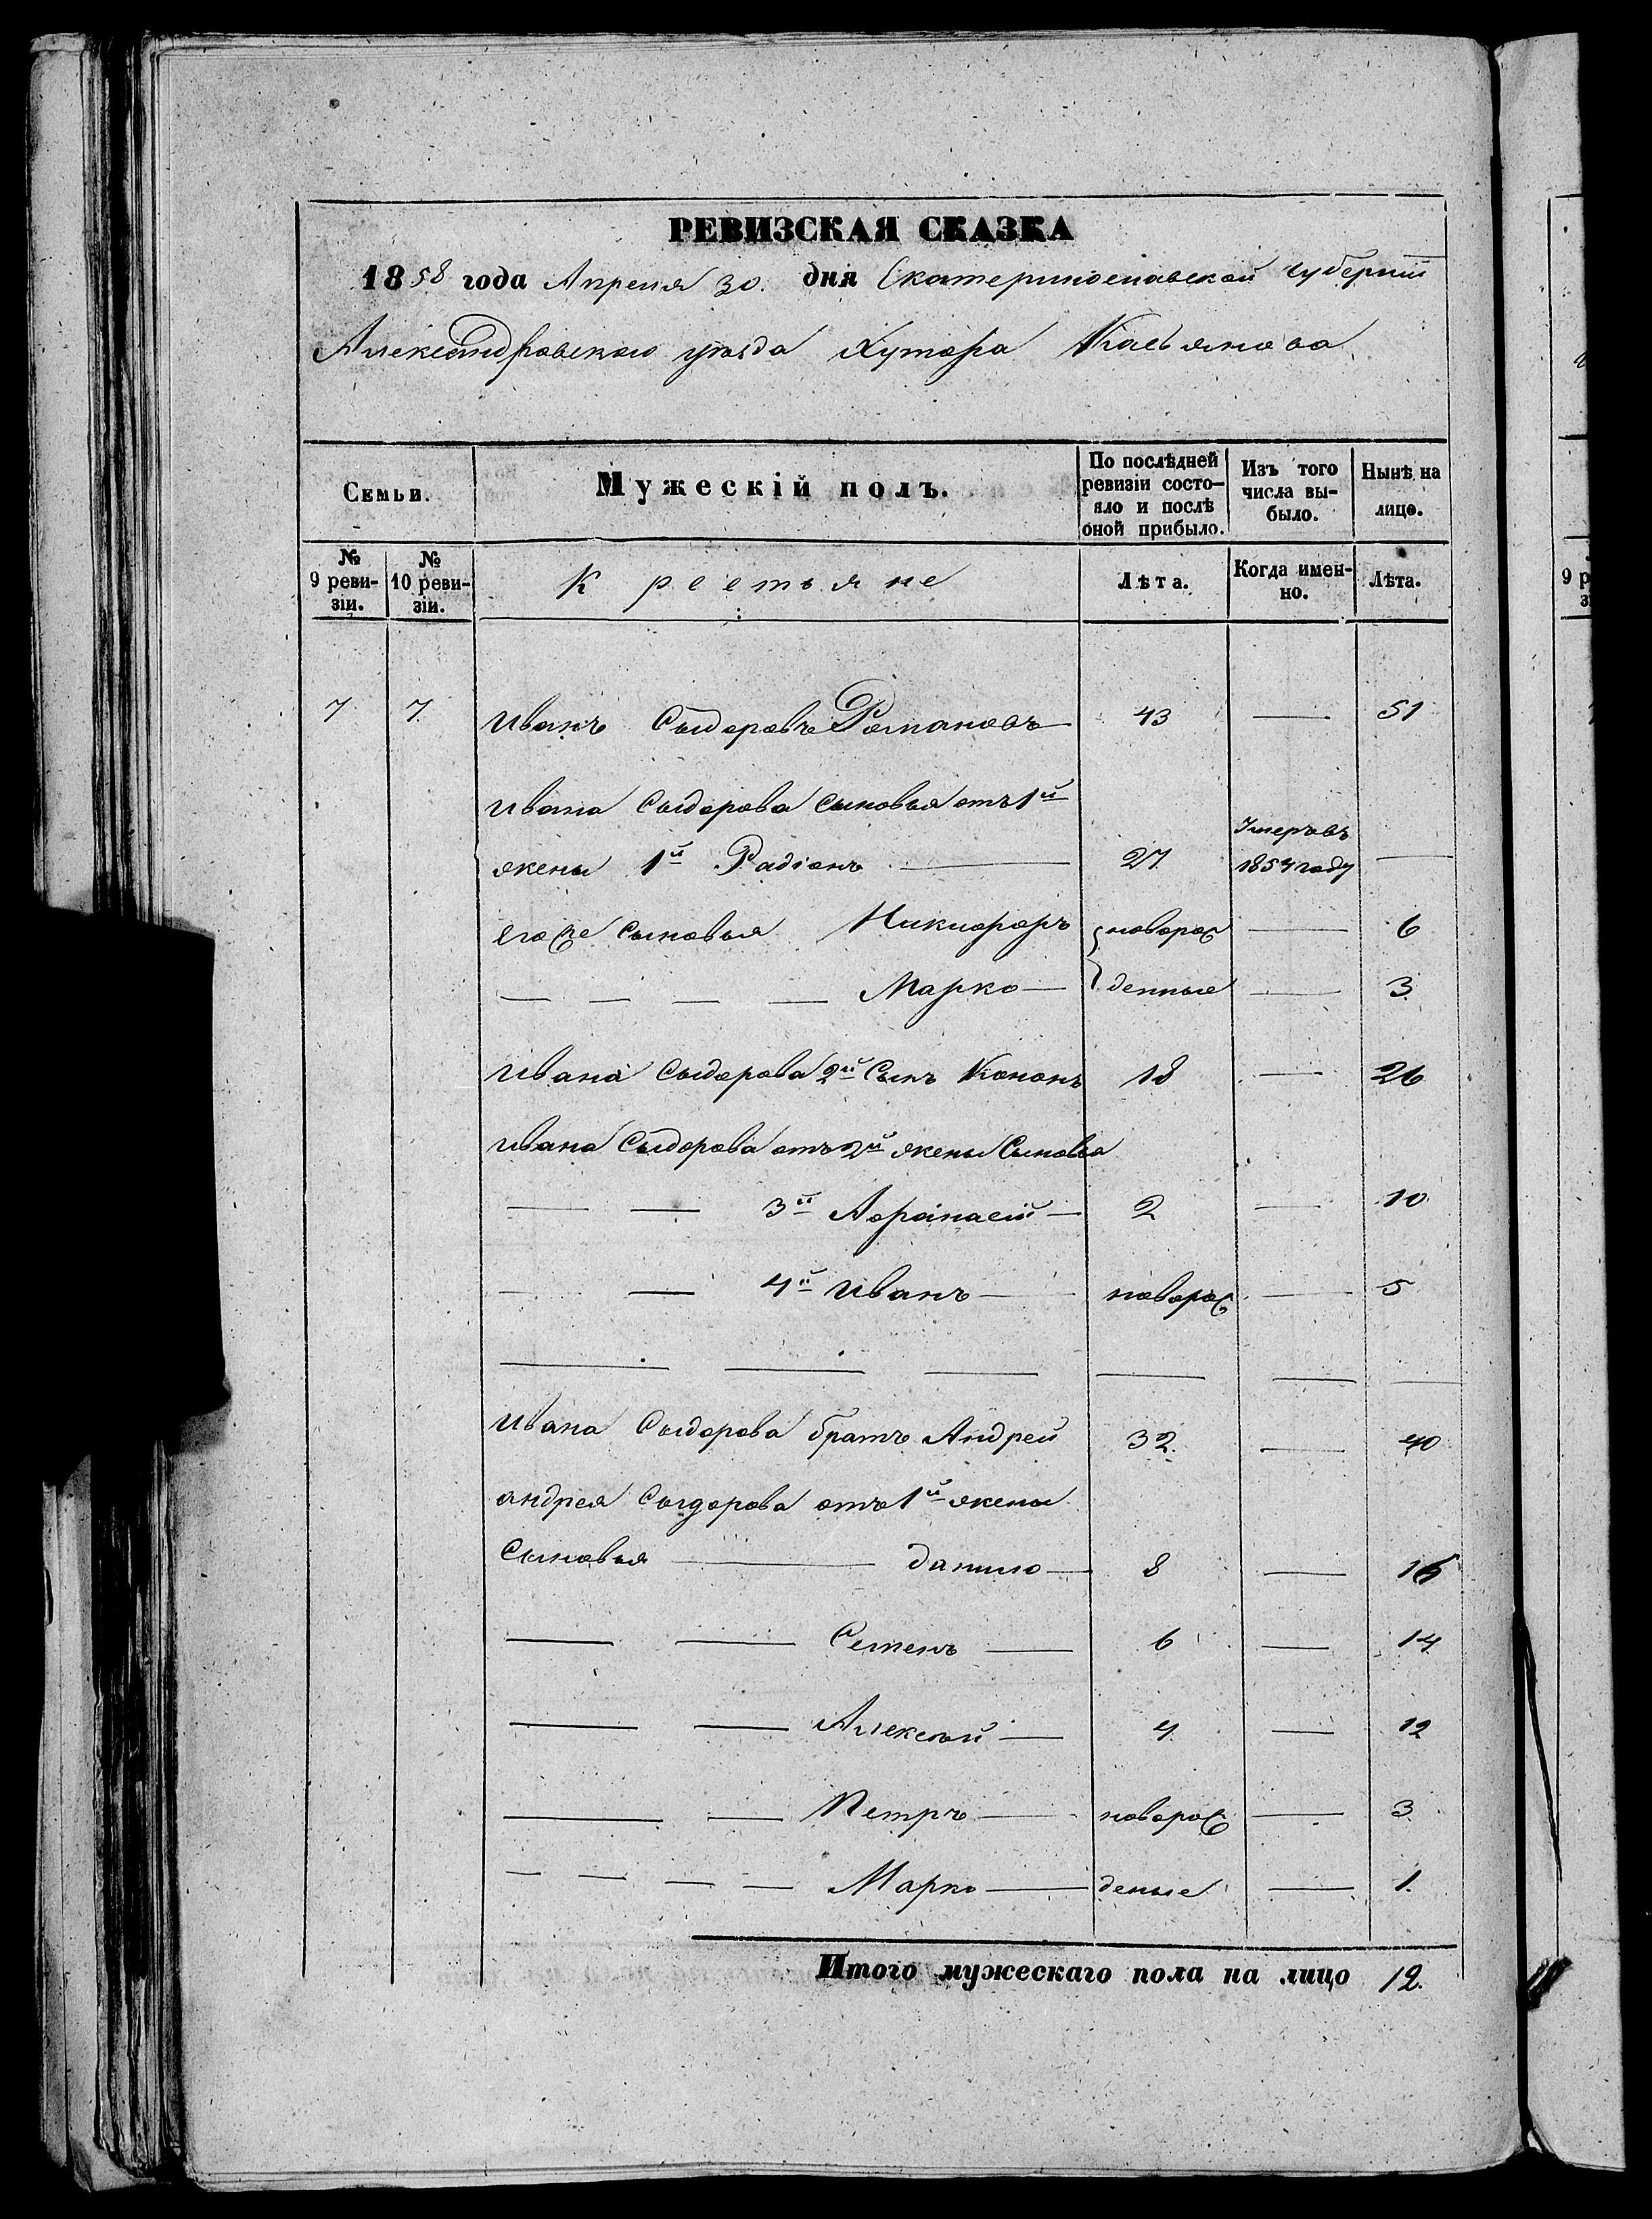 РЕВИЗСКАЯ СКАЗКА
1858 года Апреля 30. дня Екатеринославской губерніи
Александровского уѣзда Хутора Касьянова
Семьи.
Мужескій полъ.
По послѣдней ревизіи состо-яло и послѣ оной прибыло.
Изъ того числа вы-было.
Нынѣ на лицо.
№ 9 реви-зіи.
№ 10 реви-зіи.
Крестьяне
Лѣта.
Когда имен-но.
Лѣта.
7 7. Иванъ Сыдоровъ Романовъ — 43 — 51
Ивана Сыдорова сыновья отъ 1й
жены 1й Радіонъ — 27 Умеръ въ 1854 году —
его же сыновья Никифоръ новорож — 6
— — — — Марко — денные — 3.
Ивана Сыдорова 2й Сынъ Кононъ 18 — 26
Ивана Сыдорова отъ 2й жены Сыновья
— — 3й Афанасій — 2 — 10
— — 4й Иванъ — новорож. — 5
— — — — — —
Ивана Сыдорова братъ Андрей 32. — 40
андрея Сыдорова отъ 1й жены
Сыновья — данило — 8 — 16
— — Семенъ — 6 — 14
— — Алексѣй — 4. — 12
— — Петръ — новорож — 3.
— — — — Марко — деные — 1.
Итого мужескаго пола на лицо 12.
9 р
з